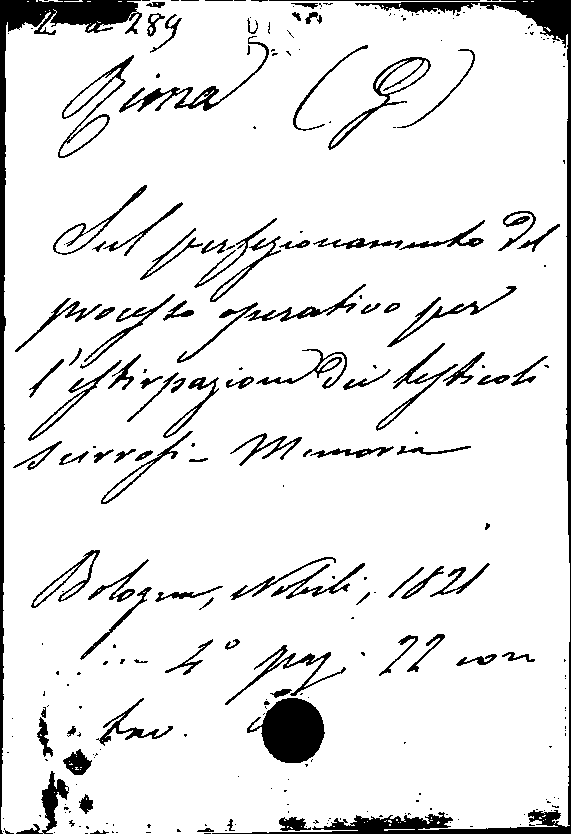 a 289
Rima (G)
Sul perfezionamento del
processo operativo per
l'estirpazione dei testicoli
scirrosi - Memoria
Bologna, Nobili, 1821
in 4° pag. 22 con
tav.